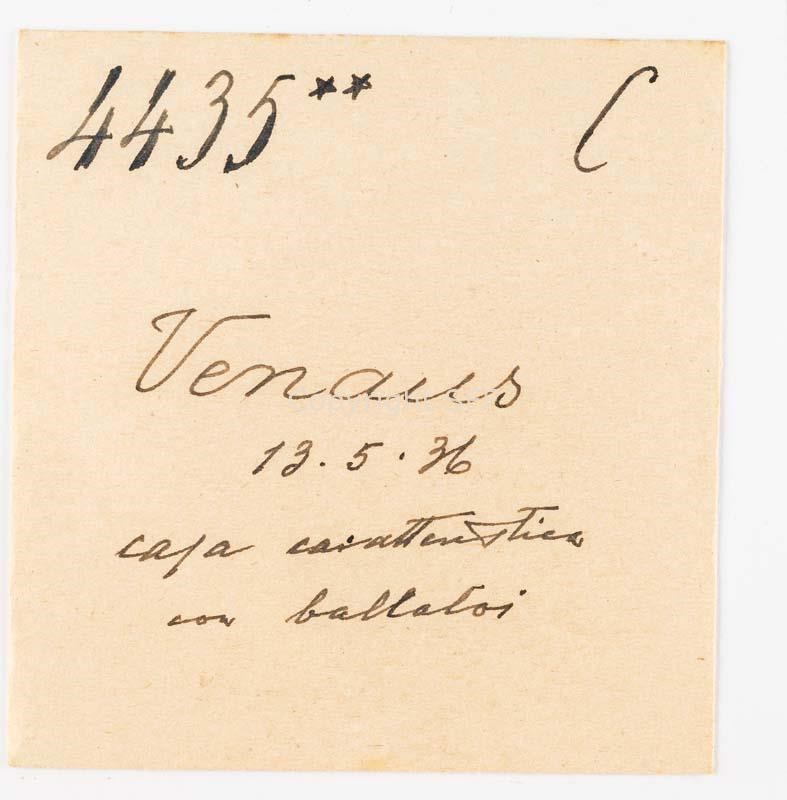 4435** C
Venaus
13.5.36
casa caratteristica
con ballatoi